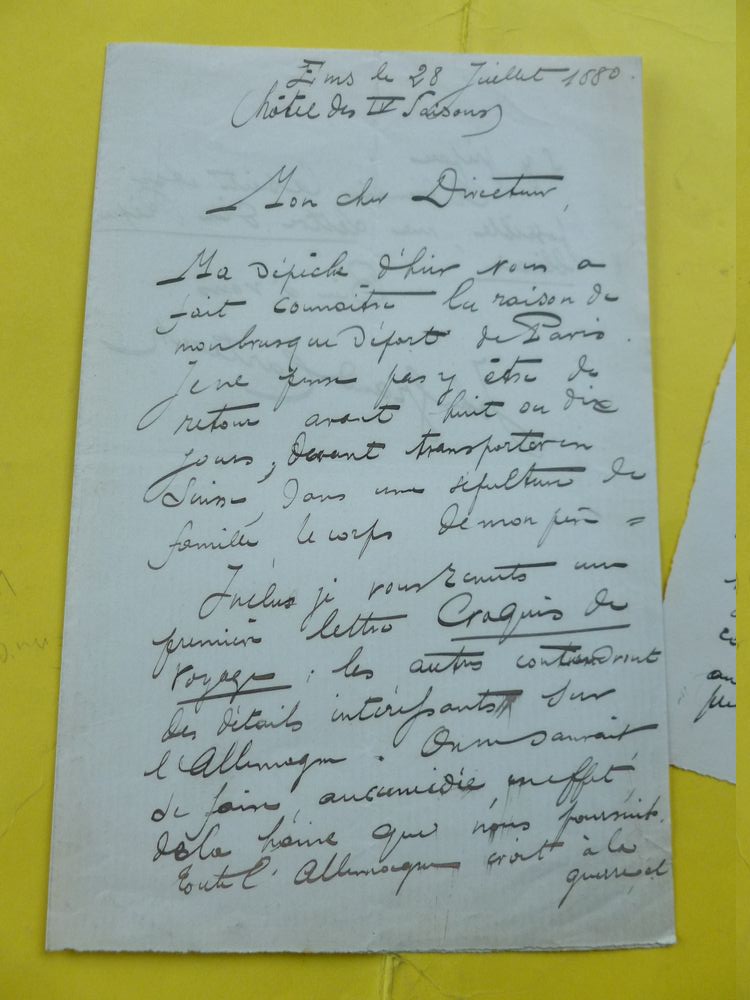 Ems le 28 Juillet 1880.
(hôtel des IV Saisons)
Mon cher Directeur,
Ma dépêche d'hier vous a
fait connaître la raison de
mon brusque départ de Paris.
Je ne pense pas y être de
retour avant huit ou dix
jours, devant transporter en
Suisse, dans une sépulture de
famille, le corps de mon père =
Inclus je vous remets une
première lettre Croquis de
voyage : les autres contiendront
des détails intéressants sur
l'Allemagne. On ne saurait
se faire, aucune idée, en effet,
de la haine que nous poursuit.
Toute l'Allemagne croit à la
guerre, et